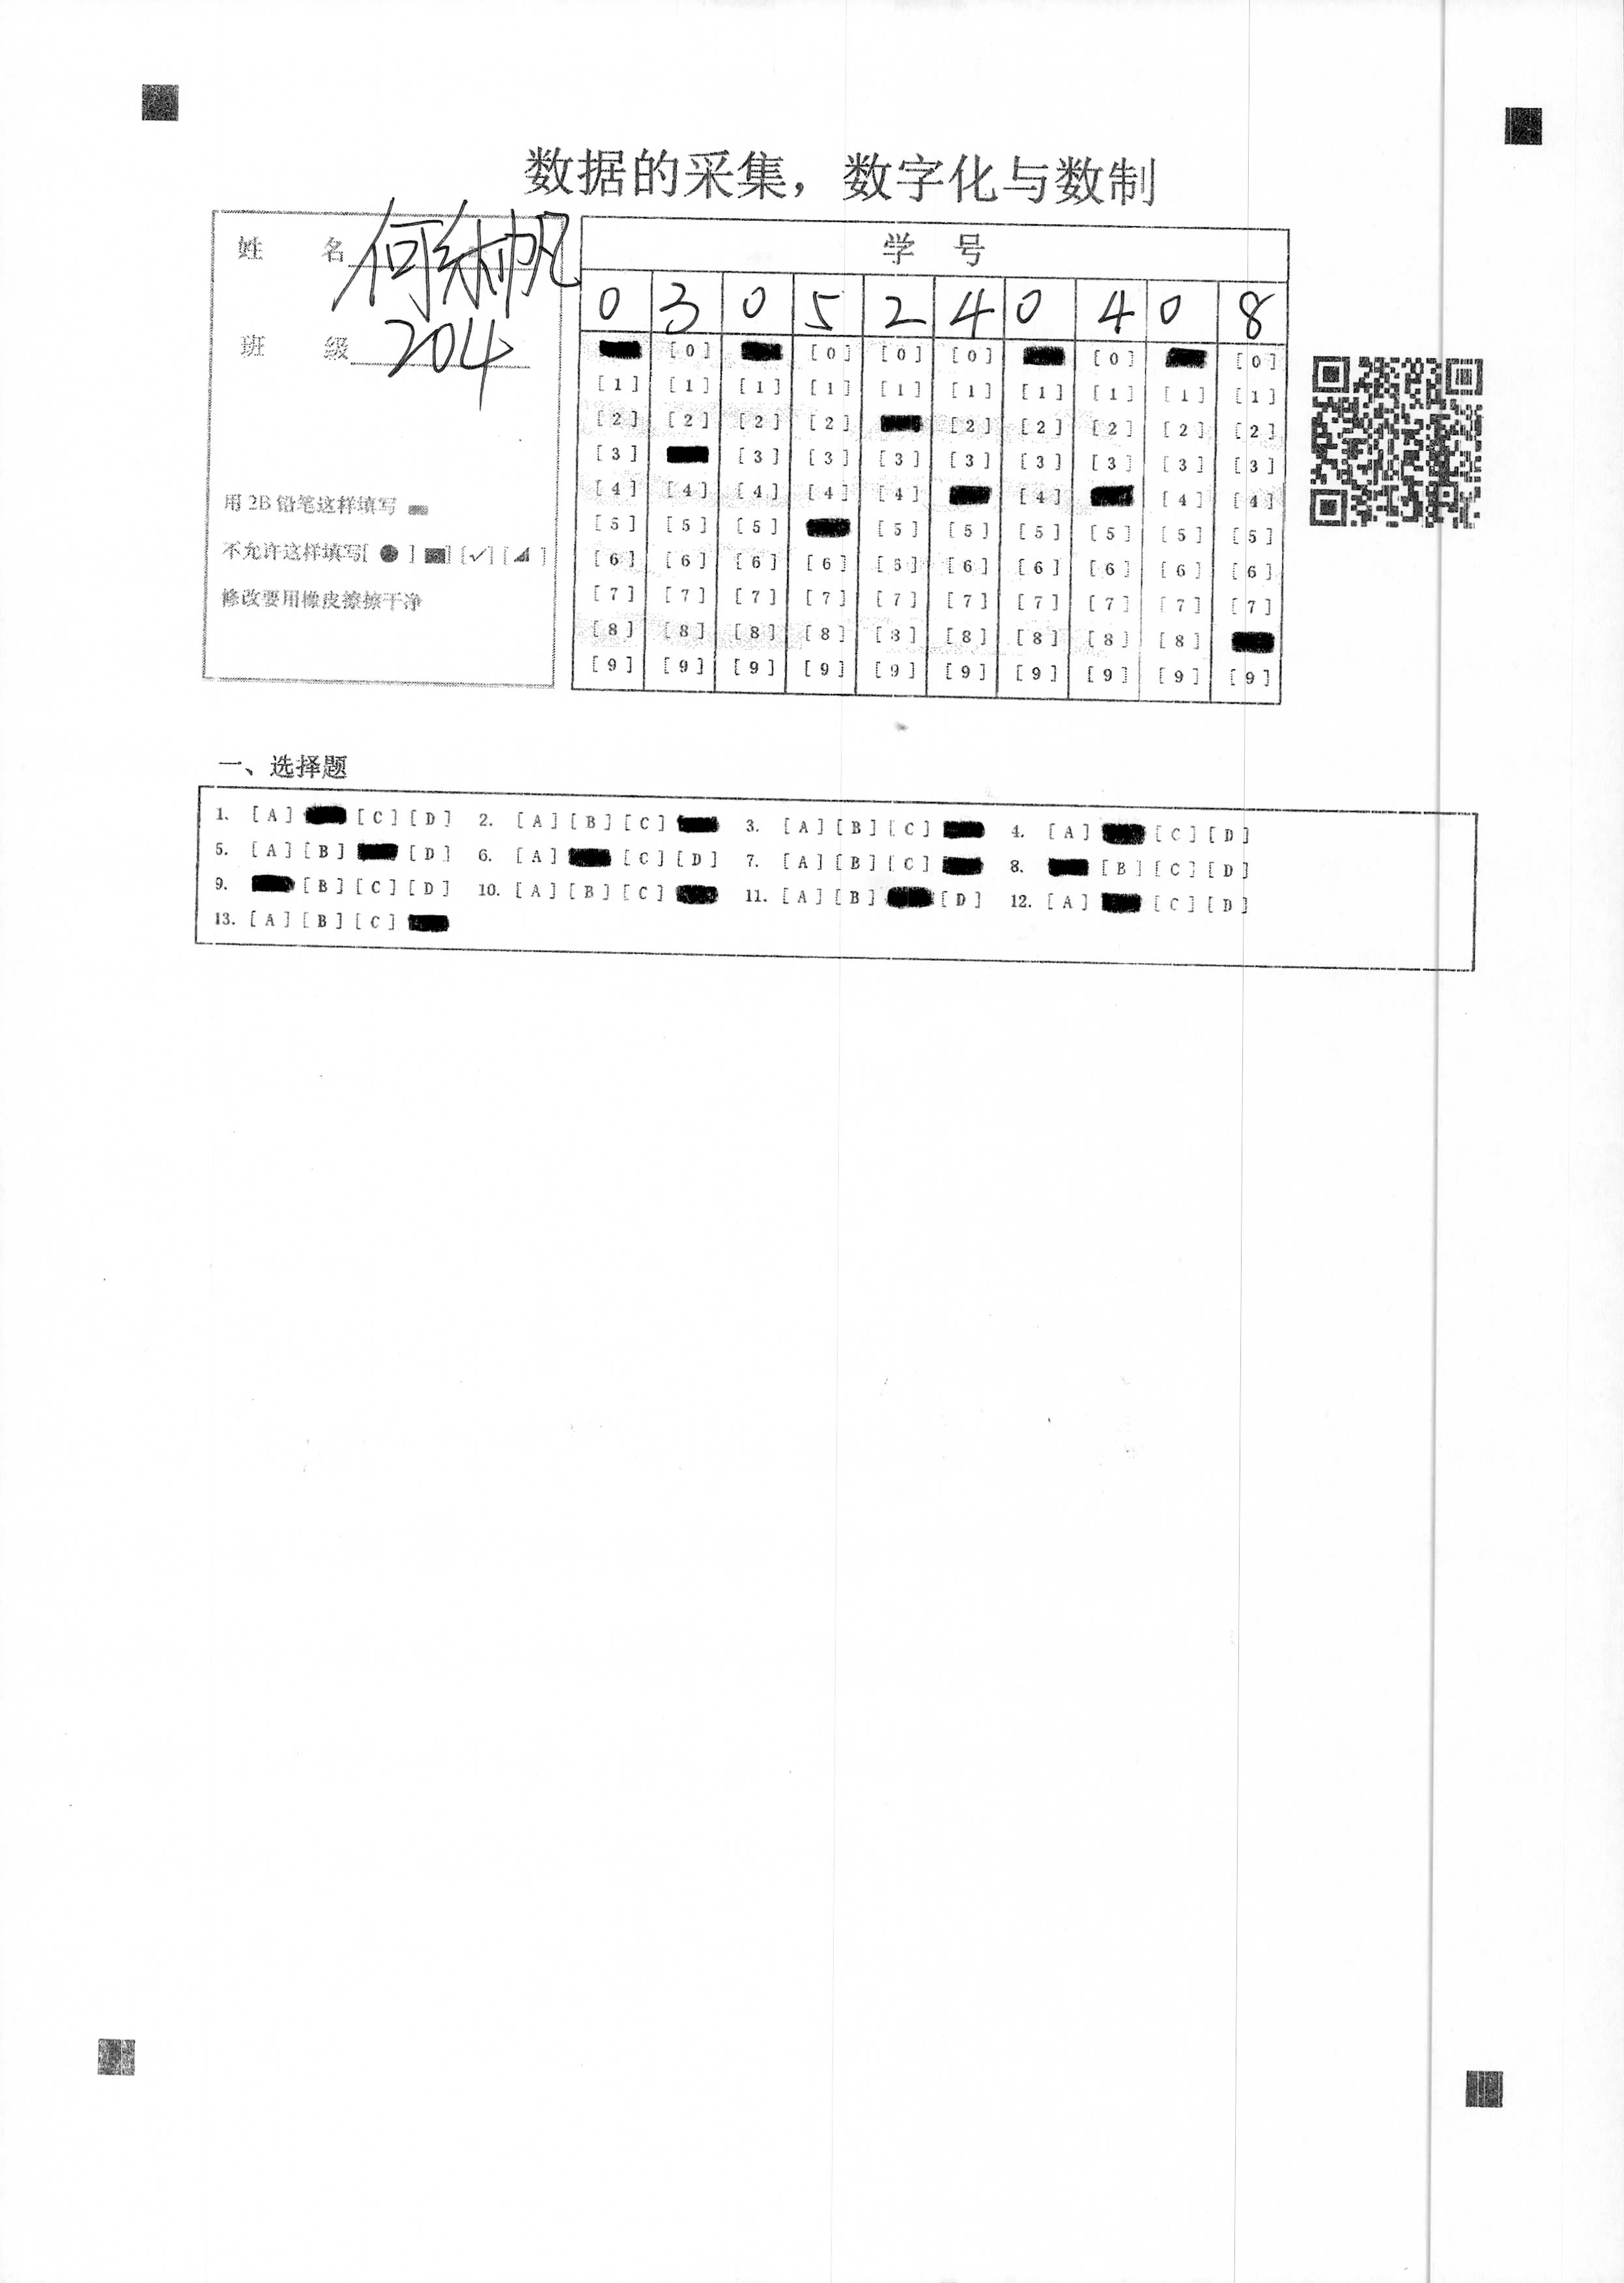 数据的采集，数字化与数制
姓 名 何 帆
班 级 204
用 2B 铅笔这样填写
不允许这样填写[ ● ] [✓] [ ]
修改要用橡皮擦擦干净
学 号
0 3 0 5 2 4 0 4 0 8
[0] [0] [0] [0] [0] [0]
[1] [1] [1] [1] [1] [1] [1] [1] [1] [1]
[2] [2] [2] [2] [2] [2] [2] [2] [2]
[3] [3] [3] [3] [3] [3] [3] [3] [3]
[4] [4] [4] [4] [4] [4] [4] [4]
[5] [5] [5] [5] [5] [5] [5] [5] [5]
[6] [6] [6] [6] [6] [6] [6] [6] [6] [6]
[7] [7] [7] [7] [7] [7] [7] [7] [7] [7]
[8] [8] [8] [8] [8] [8] [8] [8] [8]
[9] [9] [9] [9] [9] [9] [9] [9] [9] [9]
一、选择题
1. [A] [C] [D] 2. [A] [B] [C] 3. [A] [B] [C] 4. [A] [C] [D]
5. [A] [B] [D] 6. [A] [C] [D] 7. [A] [B] [C] 8. [B] [C] [D]
9. [B] [C] [D] 10. [A] [B] [C] 11. [A] [B] [D] 12. [A] [C] [D]
13. [A] [B] [C]